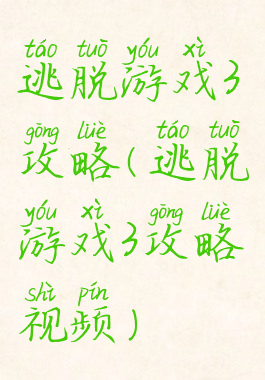 táo tuō yóu xì
逃脱游戏3
gōng lüè táo tuō
攻略(逃脱
yóu xì gōng lüè
游戏3攻略
shì pín
视频)